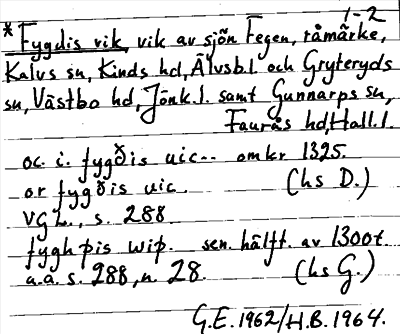 1-2
*Fygdis vik, vik av sjön Fegen, råmärke,
Kalvs sn, Kinds hd, Älvsb.l och Gryteryds
sn, Västbo hd, Jönk.l. samt Gunnarps sn,
Faurås hd, Hall.l.
oc. i. fygðis uic-- omkr 1325.
or fygðis uic. (hs D.)
VGL., s. 288
fyghþis wiþ. sen. hälft. av 1300t.
a.a. s. 288, n. 28. (hs G.)
G.E. 1962/H.B. 1964.